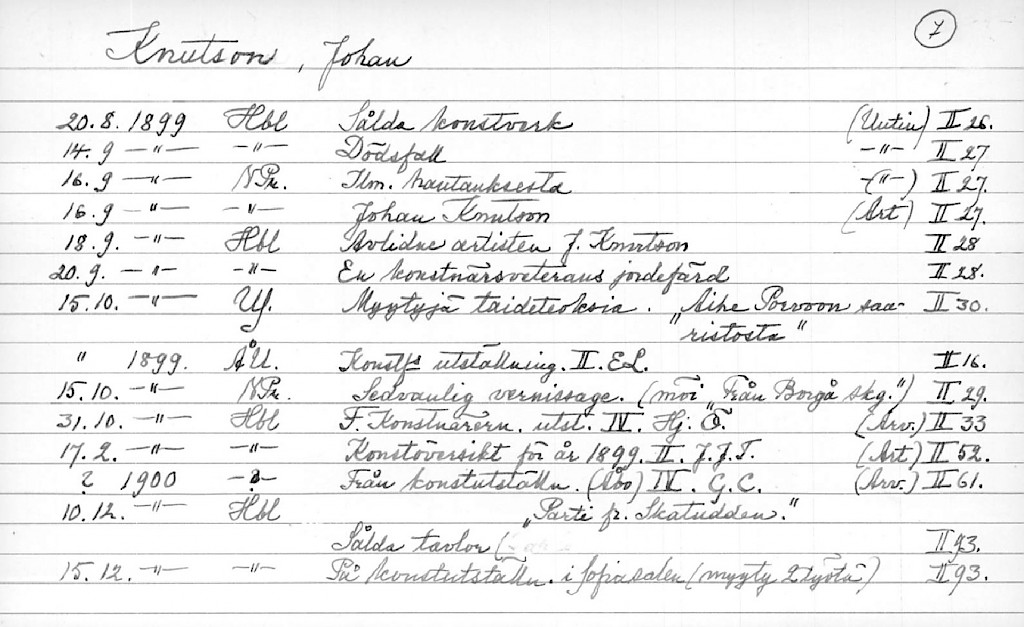 7
Knutson, Johan
20.8. 1899 Hbl Sålda konstverk (Uutin) II 26.
14.9 —"— —"— Dödsfall —"— II 27
16.9 —"— N.Pr. Ilm. hautauksesta —"—) II 27.
16.9 —"— —"— Johan Knutson (Art) II 27.
18.9. —"— Hbl Avlidne artisten J. Knutson II 28
20.9. —"— —"— En konstnärsveterans jordefärd II 28.
15.10. —"— U.S. Myytyjä taideteoksia. „Aihe Porvoon saa- II 30.
ristosta"
" 1899. ÅU. Konstfs utställning. II. E.L. II 16.
15.10. —"— N.Pr. Sedvanlig vernissage. (möi „Från Borgå skg.") II 29.
31.10. —"— Hbl F. Konstnärern. utst. IV. Hj. Ö. (Arv.) II 33
17.2. —"— —"— Konstöversikt för år 1899. II. J.J.T. (Art) II 52.
? 1900 —?— Från konstutställn. (Åbo) IV. G.C. (Arv.) II 61.
10.12. —"— Hbl „Parti fr. Skatudden."
Sålda tavlor ( II 93.
15.12. —"— —"— På konstutställn. i Sofiasalen (myyty 2 työtä) II 93.